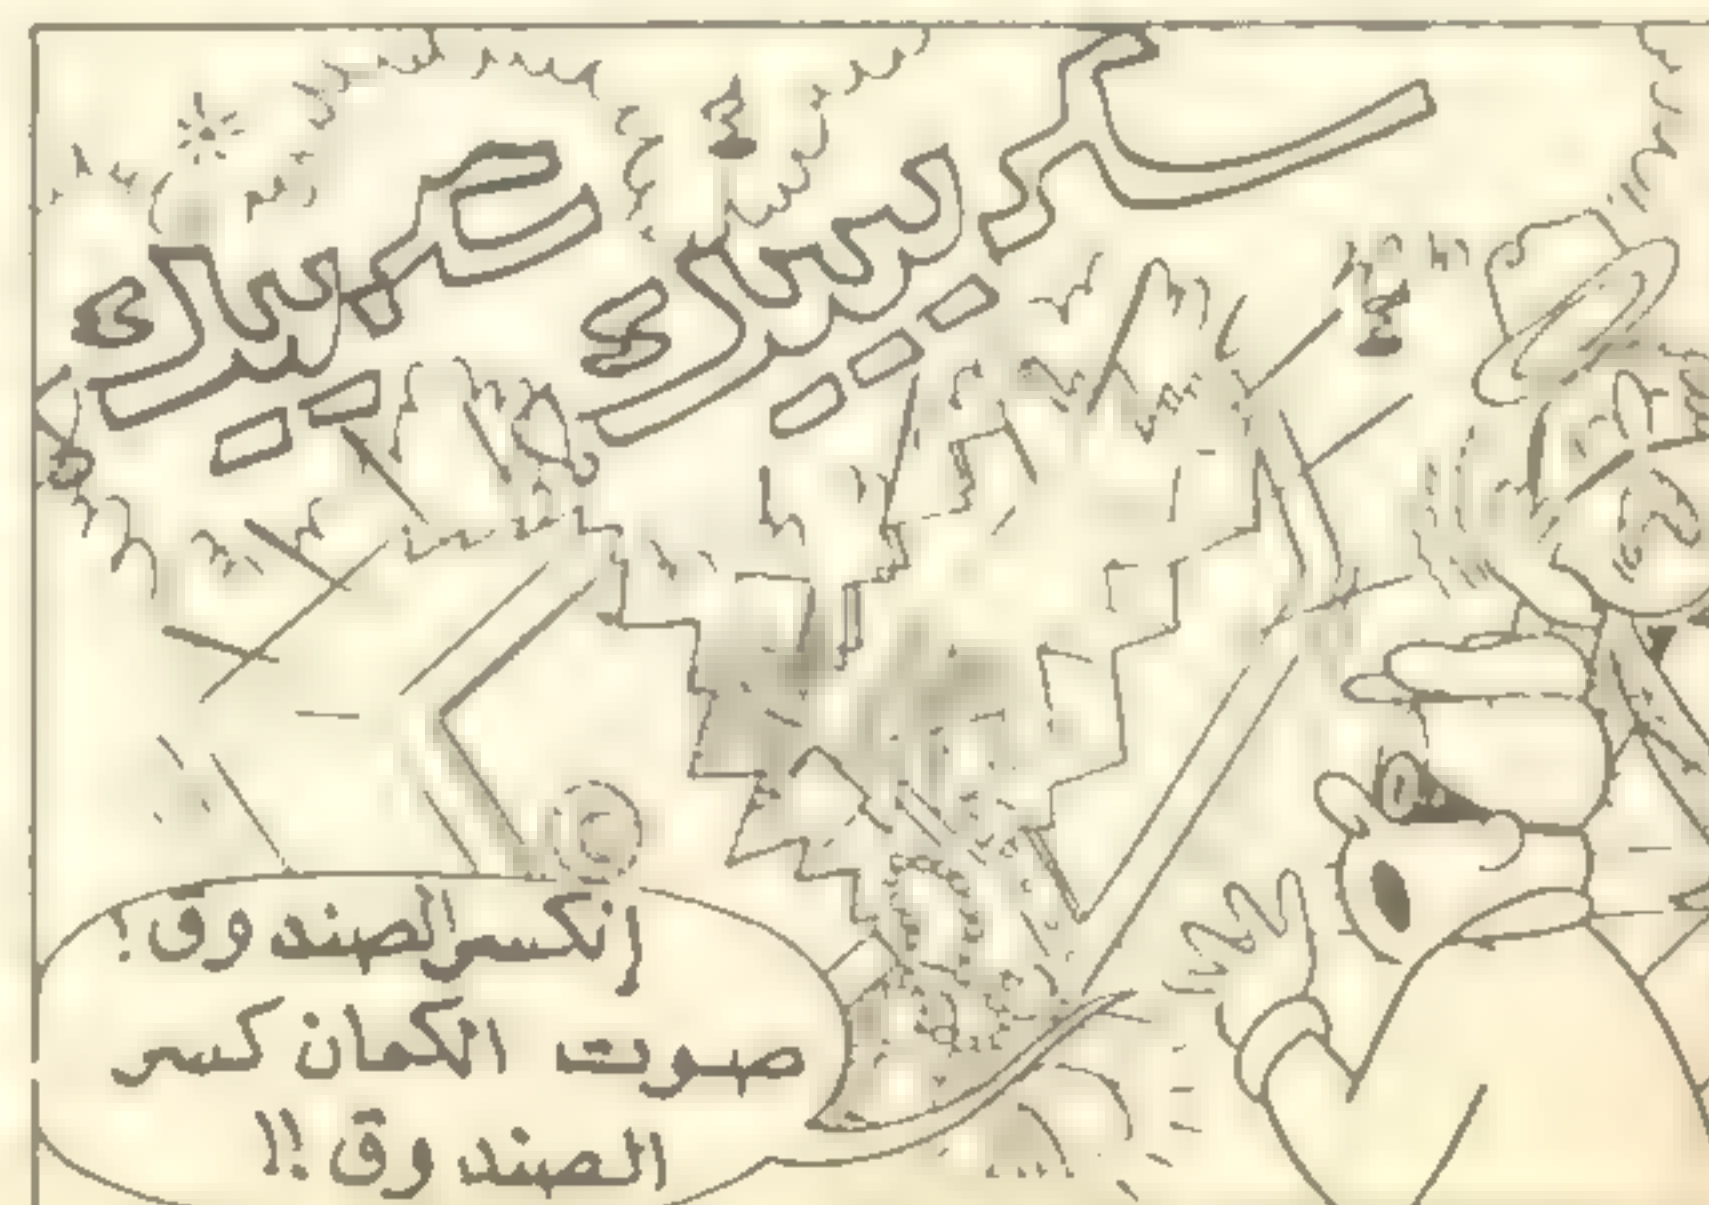 سكرييييك صرييك
إنكسر الصندوق!
صوت الكمان كسر
الصندوق!!